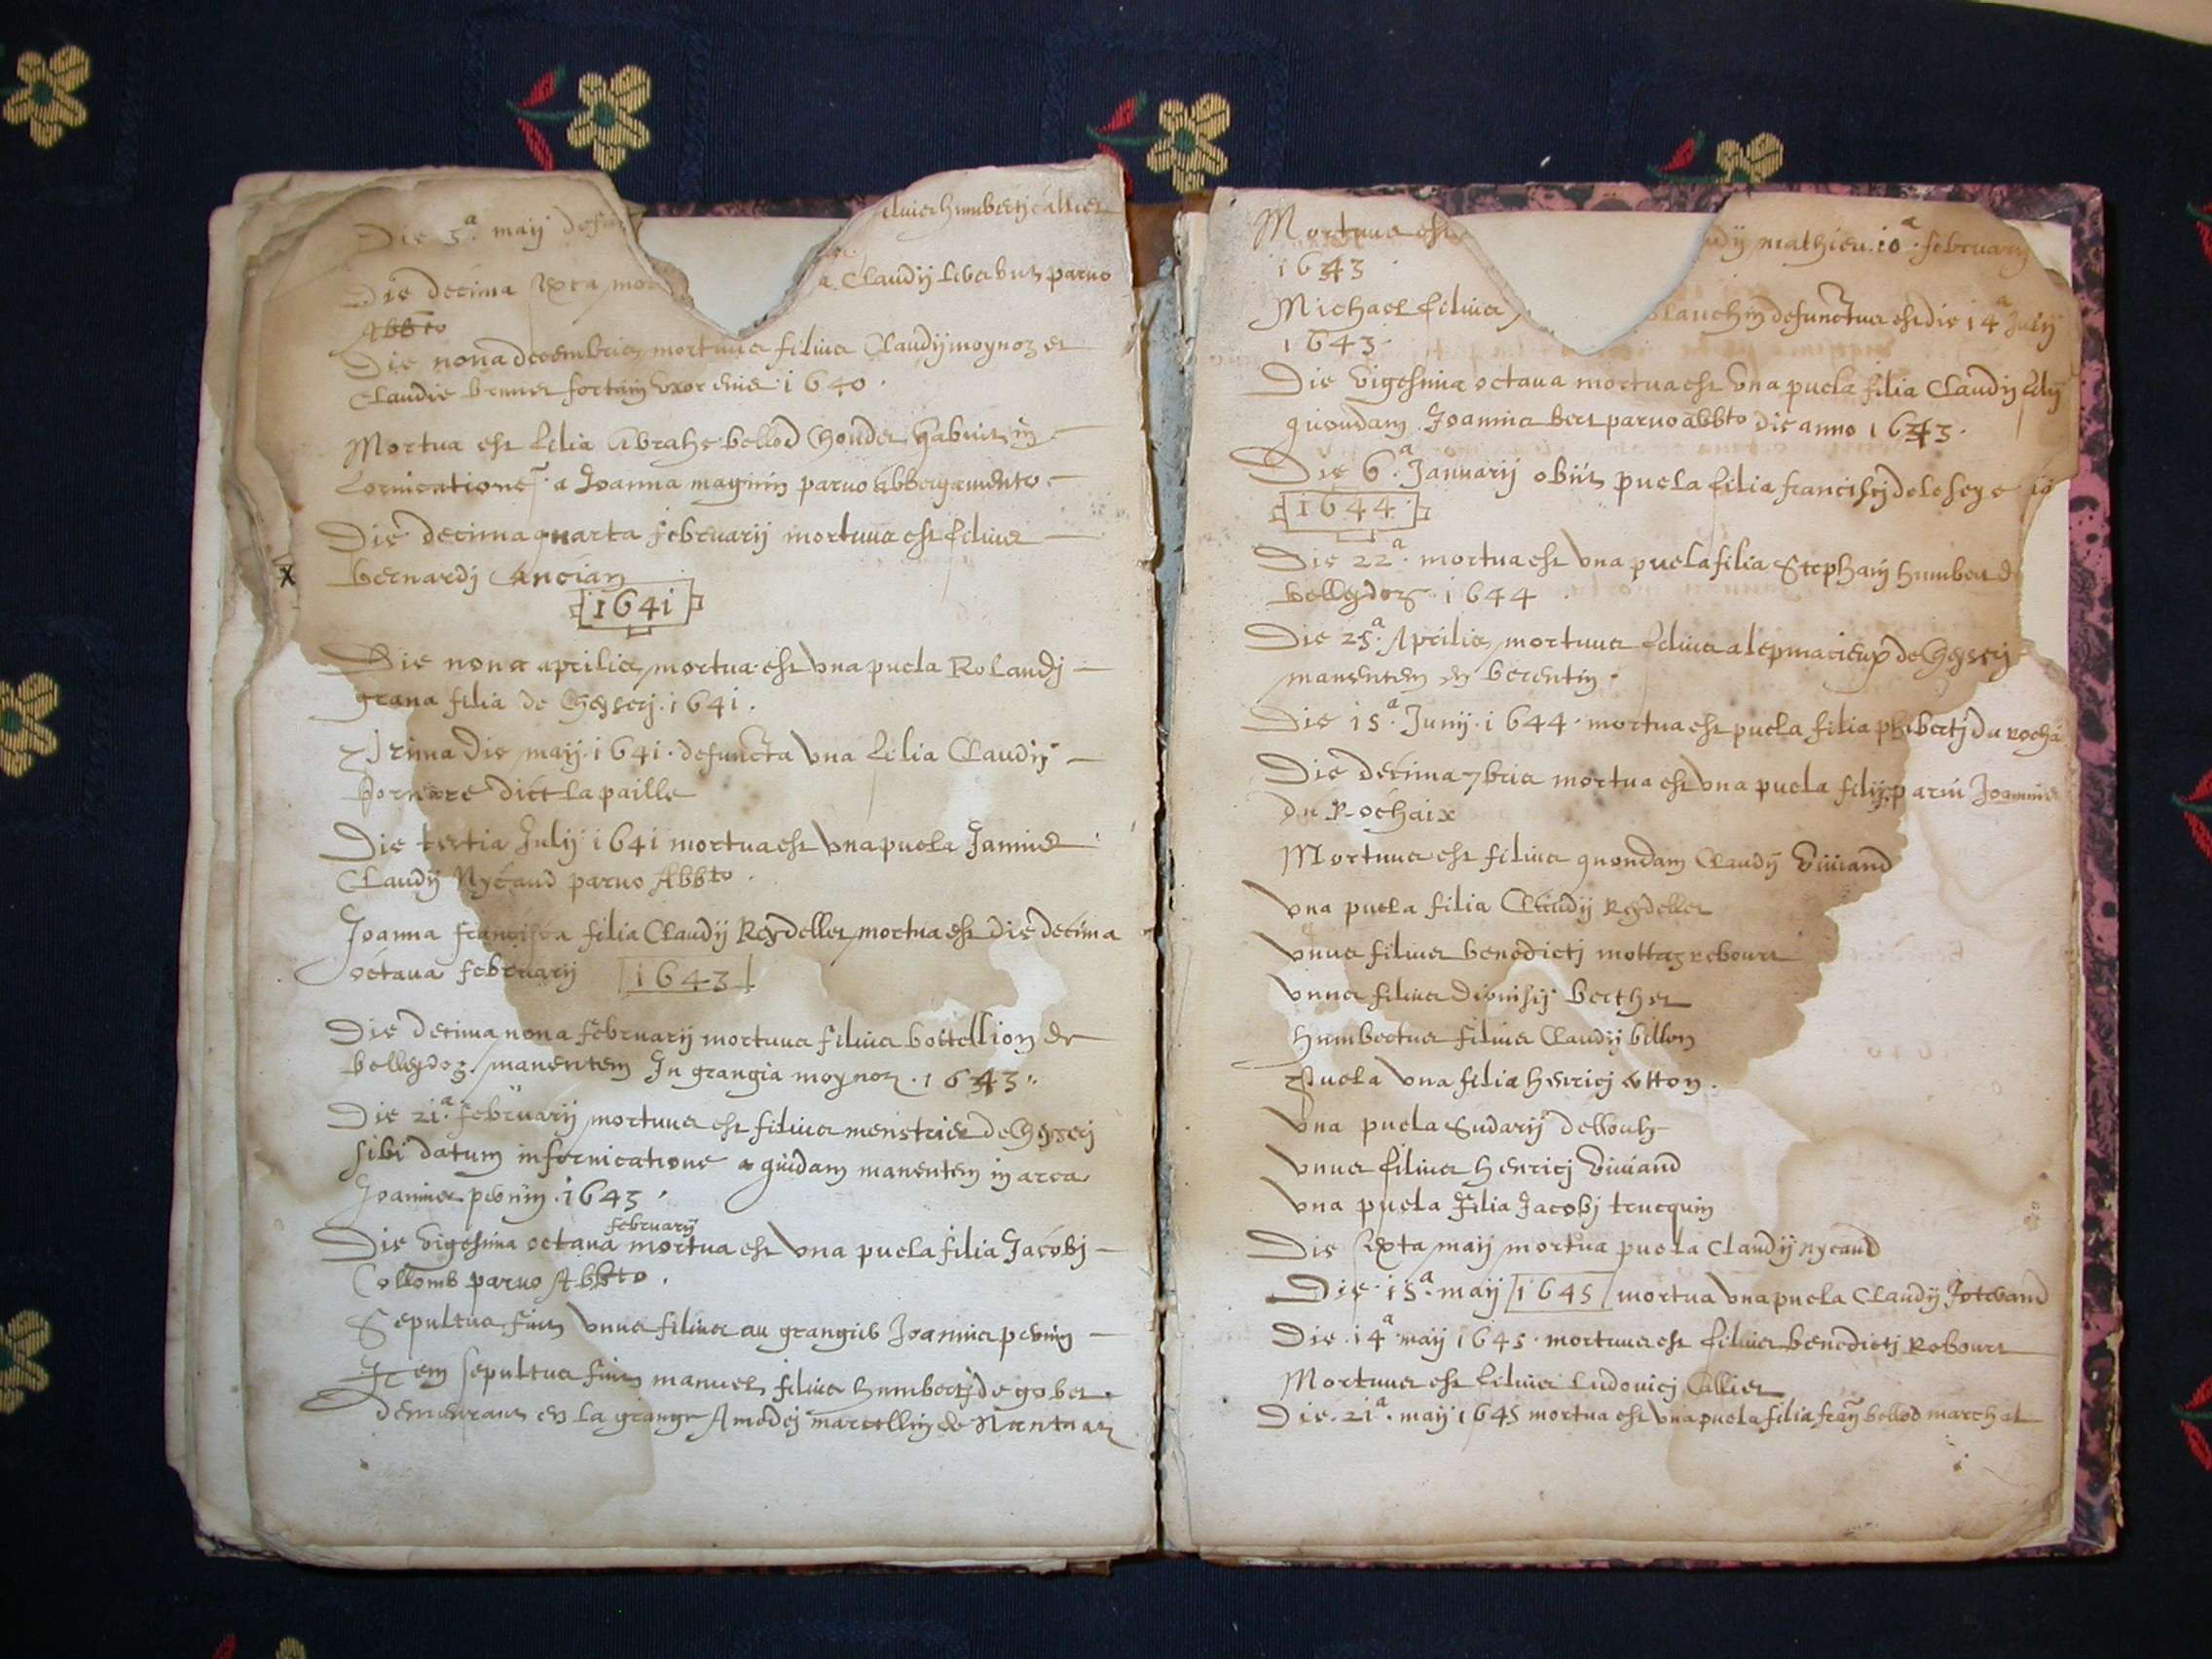 Die 5.a maij
filius humbertj Callier
Die decima sexta mor
a Claudij paruo
Abbto
Die nona decembris mortuus filius Claudij moynoz et
Claudie brunet uxor eius 1640.
Mortua est filia Abrahe bellod habuit in
fornicatione a Joanna magnin paruo abbergamento
Die decima quarta februarij mortuus est filius
bernardj Ancian
1641
Die nona aprilis mortua est vna puela Rolandj
grana filia de Cheysserj. 1641.
Prima die maij. 1641. defuncta vna filia Claudij
bornare dict la paille
Die tertia Julij 1641 mortua est vna puela
Claudij Nycaud paruo Abbto.
Joanna francisca filia Claudij Reydellet mortua est die decima
octaua februarij 1643
Die decima nona februarij mortuus filius bottellion de
belleydoz manentem In grangia moynoz. 1643.
Die 21.a februarij mortuus est filius menstrier de Cheyserj
sibi datum in fornicatione a quidam manentem in area
Joannis pernin. 1643.
februarij
Die vigesima octaua mortua est vna puela filia Jacobj
Collomb paruo Abbto.
Sepultus fuit vnus filius au grangier Joannis pernin
Item sepultus fuit manuel filius humbertj de gobet
demeurant en la grange Amedej marcellin de Nantuaz
Mortuus est
dij mathieu. 10.a februarij
1643
Michael filius
blanchin defunctus est die 14.a Julij
1643.
Die vigesima octaua mortua est vna puela filia Claudij filij
quondam Joannis paruo abbto die anno 1643.
Die 6.a Januarij obiit puela filia franciscj
1644
Die 22.a mortua est vna puela filia Stephani humbert de
belleydoz. 1644
Die 25.a Aprilis mortuus filius de Cheyserj
manentem en berentin.
Die 15.a Junij. 1644. mortua est puela filia phibertj du rocha
Die decima 7bris mortua est vna puela filij parui Joannis
du Rochaix
Mortuus est filius quondam Claudij viuiand
vna puela filia Claudij Reydellet
vnus filius benedictj mottaz rebourt
vnus filius dionisij berthet
humbertus filius Claudij billon
Puela vna filia henricj
vna puela Sudarij
vnus filius henricj viuiand
vna puela filia Jacobj trucquin
Die sexta maij mortua puela Claudij nycaud
Die. 15.a maij 1645 mortua vna puela Claudij Joterand
Die. 14.a maij 1645. mortuus est filius benedictj Rebourt
Mortuus est filius ludouicj Callier
Die. 21.a maij 1645 mortua est vna puela filia bellod marchal